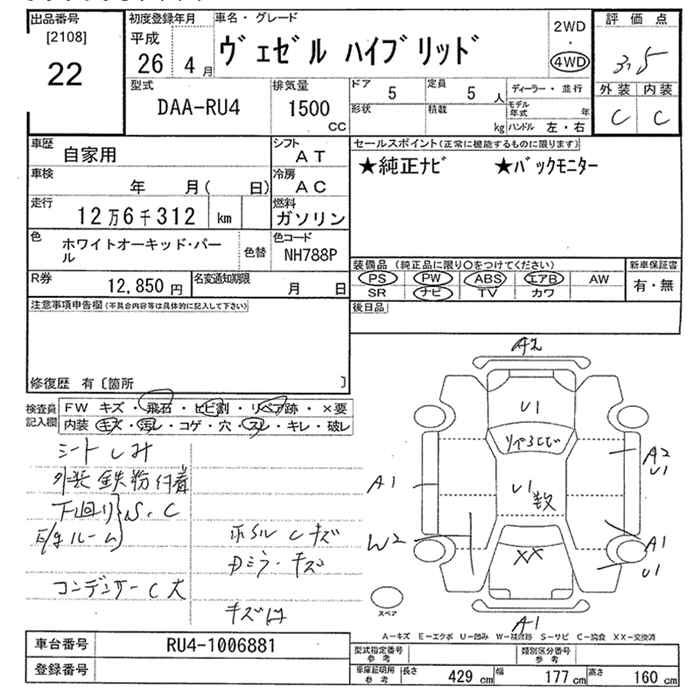 出品番号 [2108] 22
初度登録年月 平成 26年 4月
車名・グレード
ヴェゼル ハイブリッド
2WD・4WD
評価点
3.5
外装 内装
C C
型式 DAA-RU4
排気量 1500 CC
ドア 5 定員 5人
形状 積載 kg
ディーラー・並行
モデル年式 年
ハンドル 左・右
車歴 自家用
シフト AT
車検 年 月( 日)
冷房 AC
走行 12万6千312 km
燃料 ガソリン
色 ホワイトオーキッド・パール
色替
色コード NH788P
R券 12,850円
名変通知期限 月 日
セールスポイント(正常に機能するものに限ります)
★純正ナビ ★バックモニター
装備品 (純正品に限り○をつけてください)
PS PW ABS エアB AW
SR ナビ TV カワ
新車保証書
有・無
後日品
注意事項申告欄(不具合内容等は具体的に記入して下さい)
修復歴 有〔箇所 〕
検査員記入欄
FW キズ・飛石・ヒビ割・リペア跡・×要
内装 キズ・汚レ・コゲ・穴・スレ・キレ・破レ
シートしみ
外装鉄粉付着
下廻り
E/gルーム
S、C
コンデンサーC大
ホイルCキズ
Dミラーキズ
A2
U1
A1
U1数
A2
U1
W2
A1
U1
XX
A1
スペア
A-キズ E-エクボ U-凹み W-補修跡 S-サビ C-腐食 XX-交換済
車台番号 RU4-1006881
登録番号
型式指定番号 参考
類別区分番号 参考
車庫証明用 参考 長さ 429cm 幅 177cm 高さ 160cm